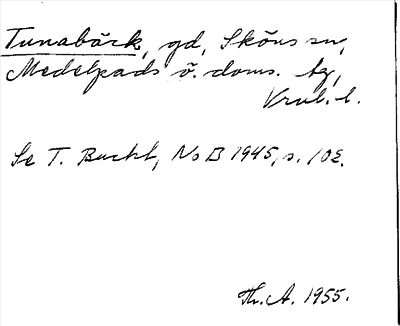 Tunabäck, gd, Sköns sn,
Medelpads ö. doms. tg,
Vrnl. l.
Se T. Bucht, No B 1945, s. 102.
Th. A. 1955.